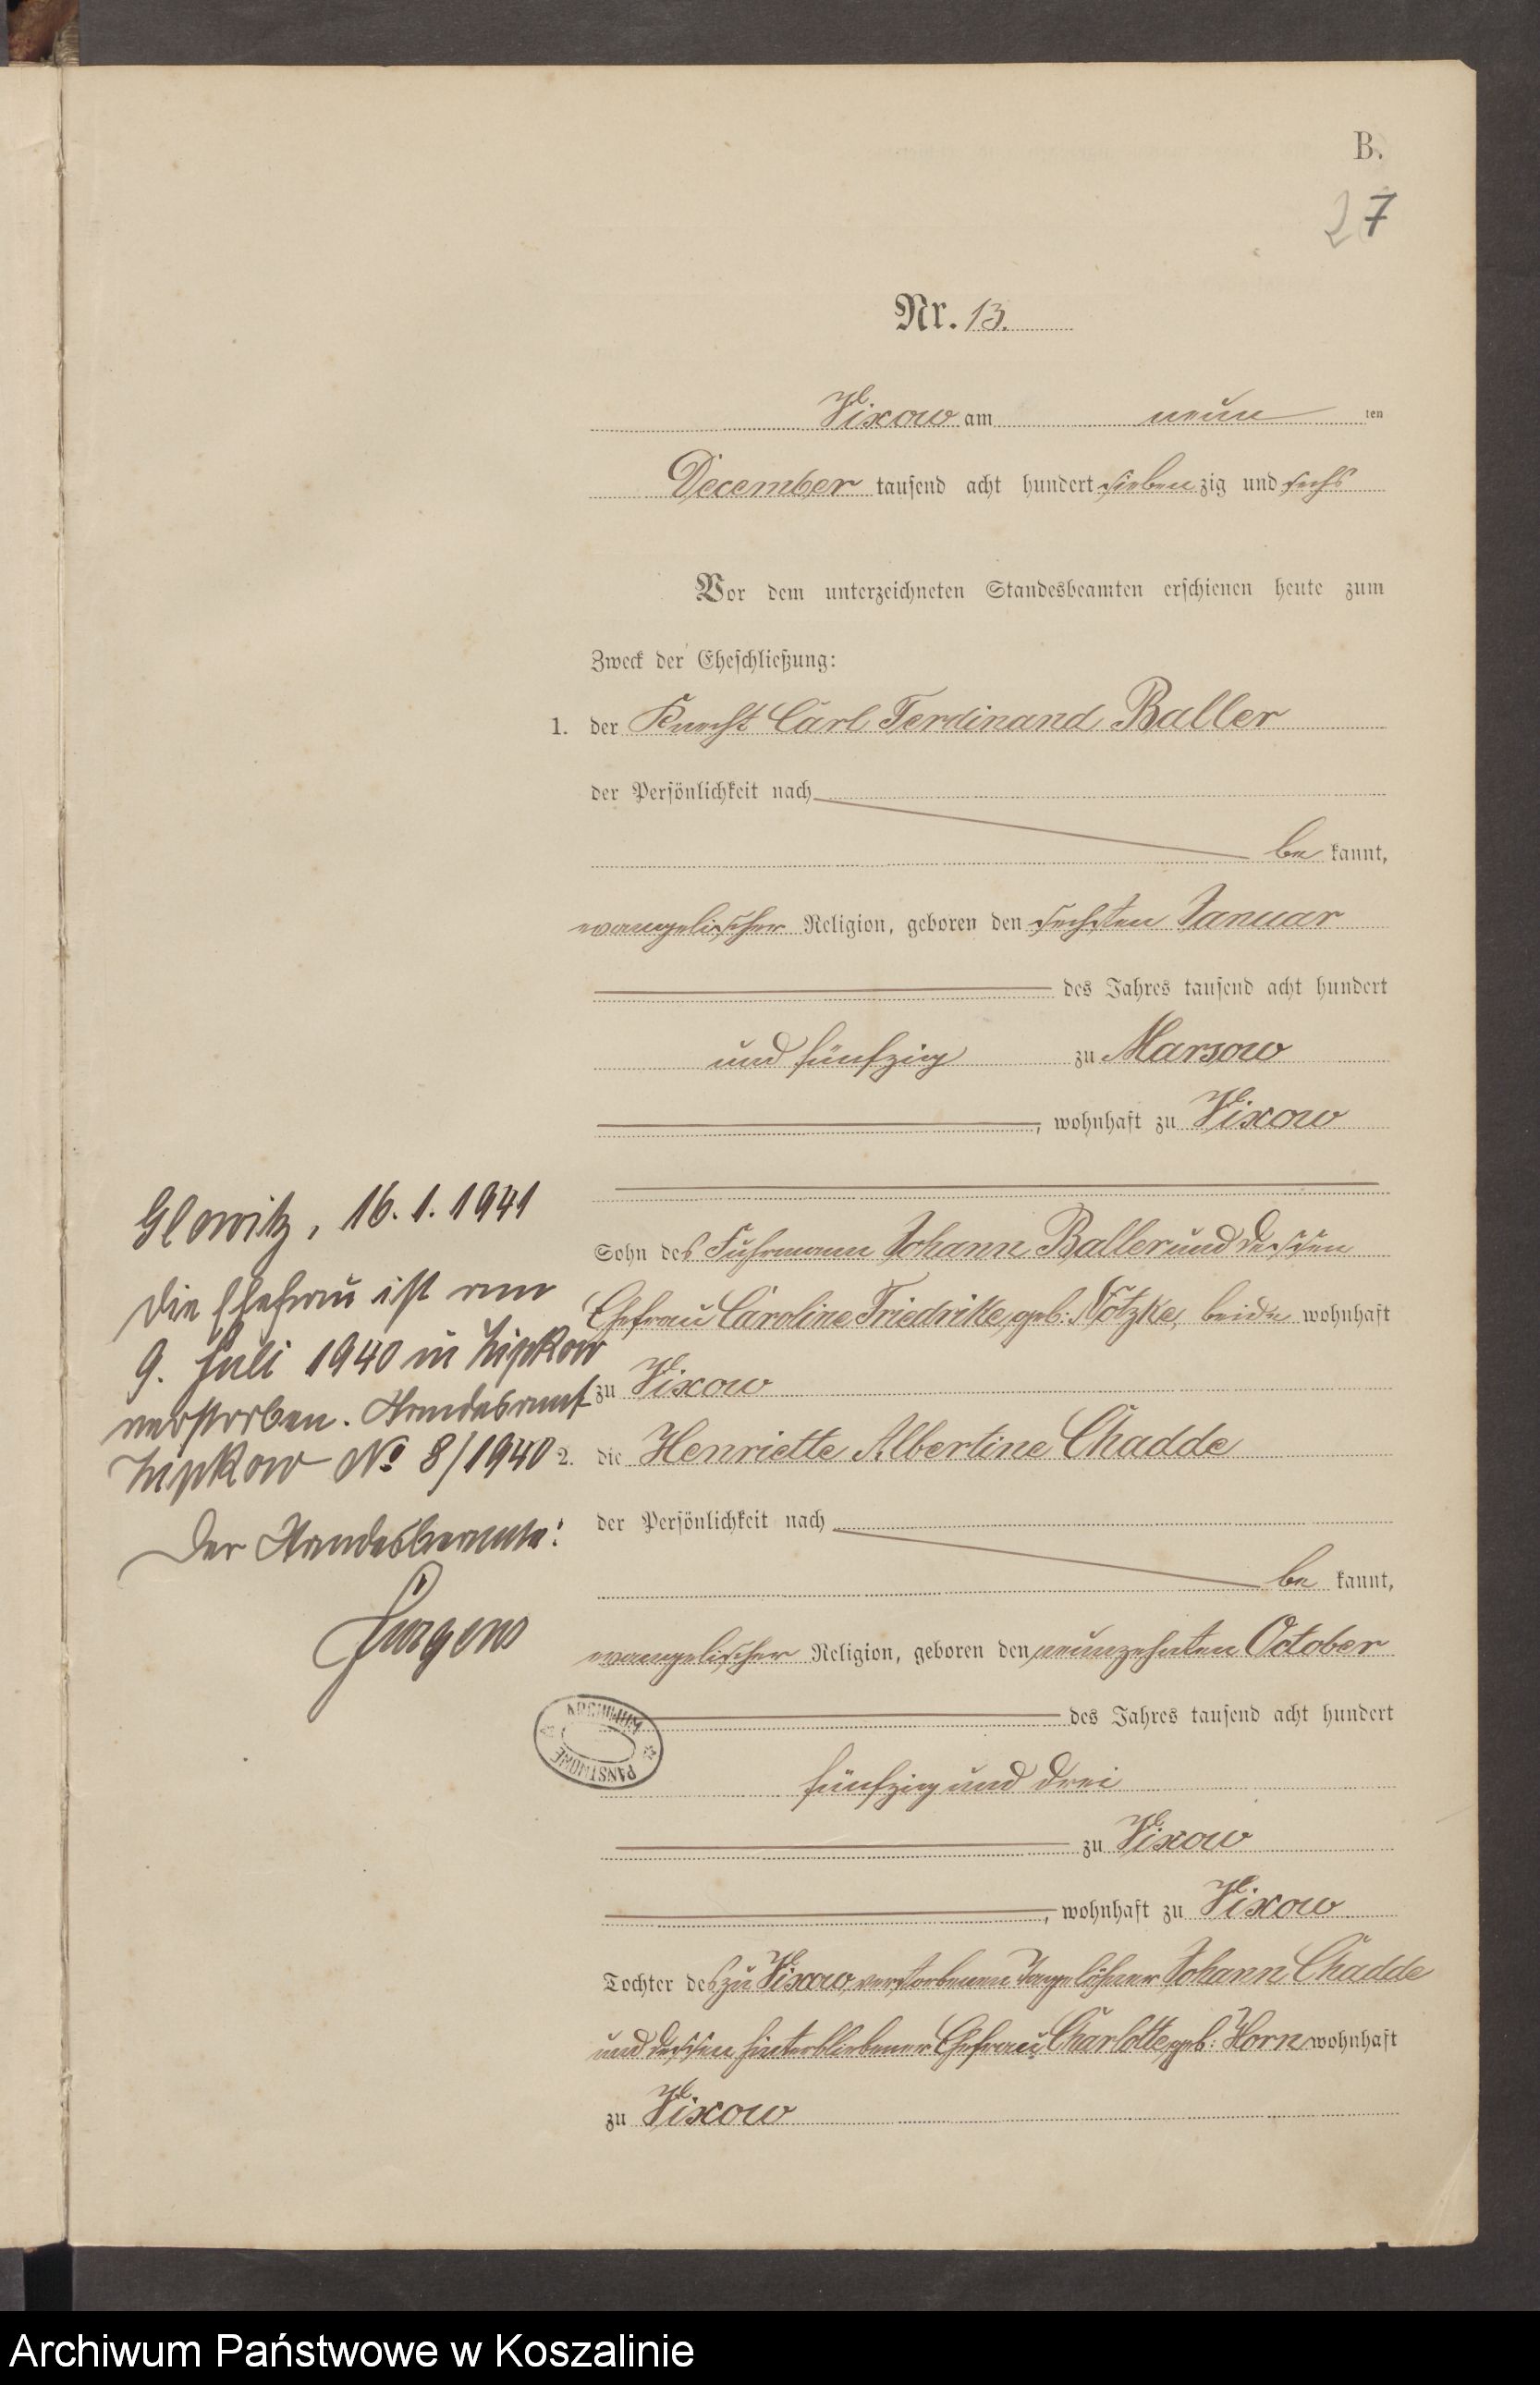 B.
27
Nr. 13.
Vixow am neun ten
December tausend acht hundert siebenzig und sechs
Vor dem unterzeichneten Standesbeamten erschienen heute zum
Zweck der Eheschließung:
1. der Knecht Carl Ferdinand Baller
der Persönlichkeit nach
be kannt,
evangelischer Religion, geboren den sechsten Januar
des Jahres tausend acht hundert
und fünfzig zu Marsow
, wohnhaft zu Vixow
Sohn des Fuhrmann Johann Baller und dessen
Ehefrau Caroline Friedrike, geb: Notzke, beide wohnhaft
zu Vixow
2. die Henriette Albertine Chadde
der Persönlichkeit nach
be kannt,
evangelischer Religion, geboren den neunzehnten October
des Jahres tausend acht hundert
fünfzig und drei
zu Vixow
, wohnhaft zu Vixow
Tochter des zu Vixow verstorbenen Tagelöhner Johann Chadde
und dessen hinterbliebener Ehefrau Charlotte, geb: Horn wohnhaft
zu Vixow
Glowitz, 16.1.1941
Die Ehefrau ist am
9. Juli 1940 in Zipkow
verstorben. Standesamt
Zipkow No 8/1940
Der Standesbeamte:
Jürgens
ARCHIWUM
PAŃSTWOWE
Archiwum Państwowe w Koszalinie